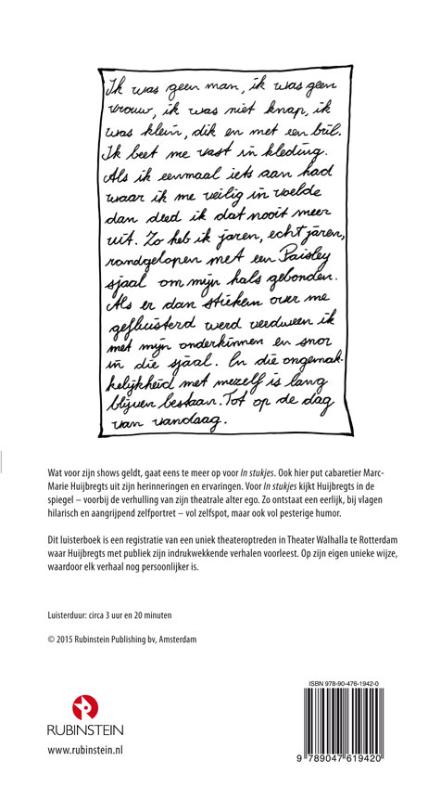 Ik was geen man, ik was geen
vrouw, ik was niet knap, ik
was klein, dik en met een bril.
Ik beet me vast in kleding.
Als ik eenmaal iets aan had
waar ik me veilig in voelde
dan deed ik dat nooit meer
uit. Zo heb ik jaren, echt jaren,
rondgelopen met een Paisley
sjaal om mijn hals gebonden.
Als er dan stiekem over me
gefluisterd werd verdween ik
met mijn onderkinnen en snor
in die sjaal. En die ongemak-
kelijkheid met mezelf is lang
blijven bestaan. Tot op de dag
van vandaag.
Wat voor zijn shows geldt, gaat eens te meer op voor In stukjes. Ook hier put cabaretier Marc-
Marie Huijbregts uit zijn herinneringen en ervaringen. Voor In stukjes kijkt Huijbregts in de
spiegel – voorbij de verhulling van zijn theatrale alter ego. Zo ontstaat een eerlijk, bij vlagen
hilarisch en aangrijpend zelfportret – vol zelfspot, maar ook vol pesterige humor.
Dit luisterboek is een registratie van een uniek theateroptreden in Theater Walhalla te Rotterdam
waar Huijbregts met publiek zijn indrukwekkende verhalen voorleest. Op zijn eigen unieke wijze,
waardoor elk verhaal nog persoonlijker is.
Luisterduur: circa 3 uur en 20 minuten
© 2015 Rubinstein Publishing bv, Amsterdam
ISBN 978-90-476-1942-0
RUBINSTEIN
www.rubinstein.nl
9 789047 619420